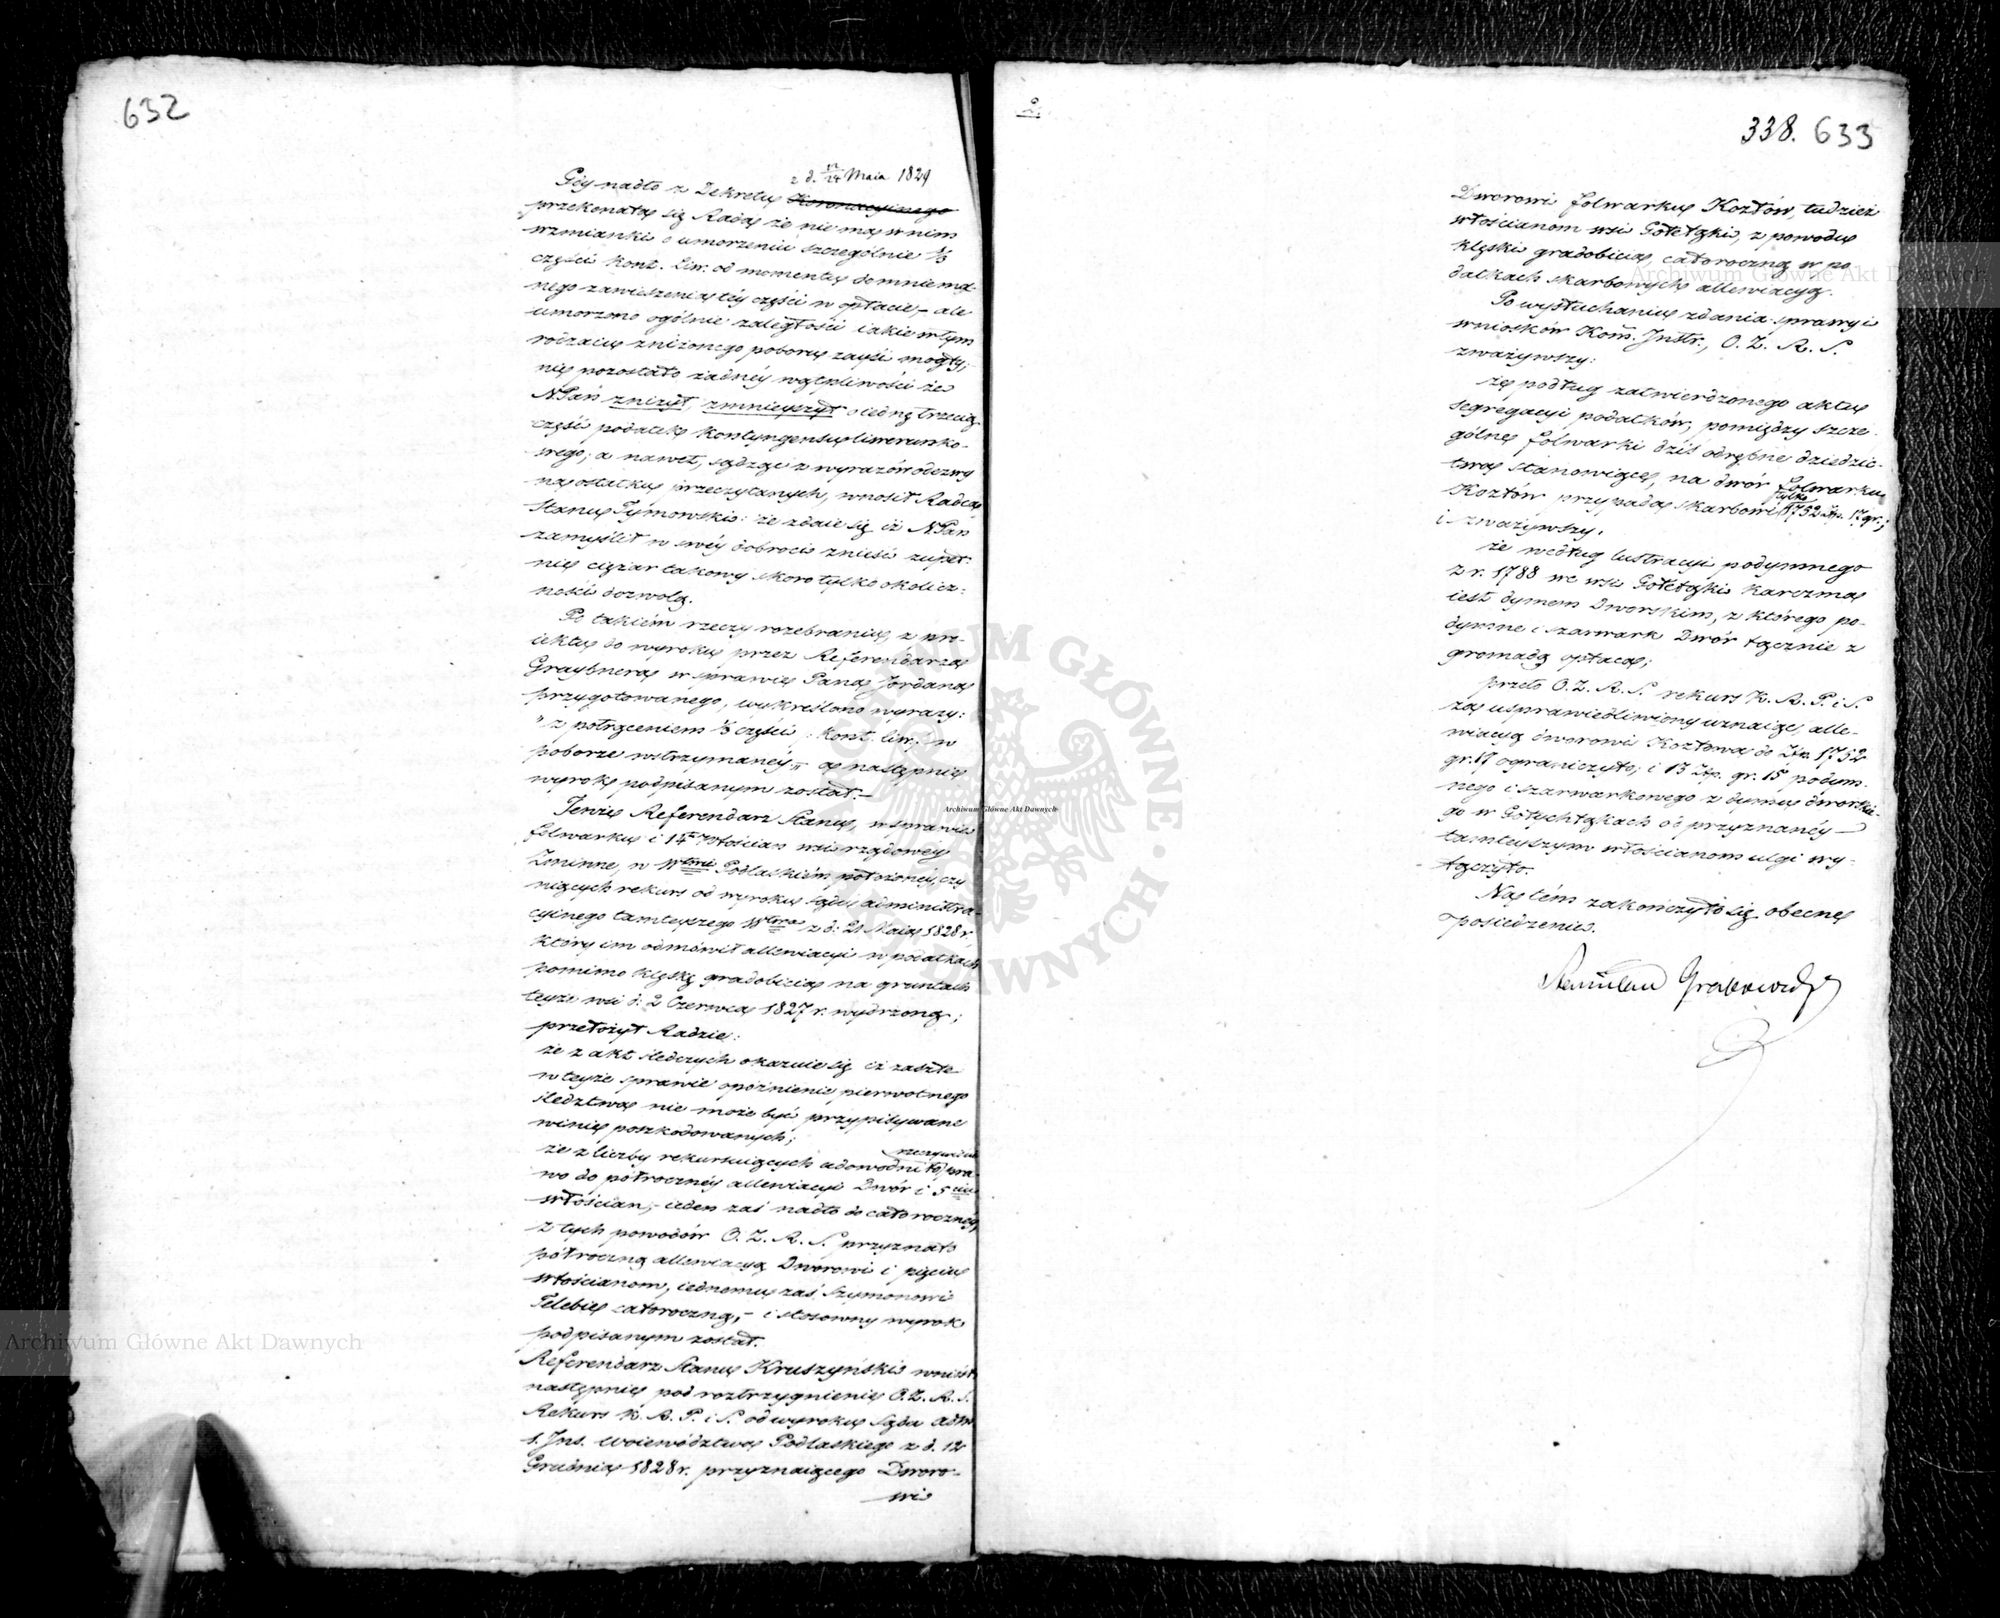 632
z d. 12/24 Maia 1829
Gdy nadto z Dekretu Koronacyinego
przekonała się Rada że nie ma w nim
wzmianki o umorzeniu szczególnie 1/3
części kont. liw. od momentu domniema-
nego zawieszenia téy części w opłacie, – ale
umorzono ogólnie zaległości iakie w tym
rodzaiu zniżonego poboru zayść mogły;
nie pozostało żadnéy wątpliwości że
NPan zniżył, zmnieyszył o iedną trzecią
część podatek kontyngensu liwerunko-
wego; a nawet, sądząc z wyrazów odezwy
na ostatku przeczytanych, wnosił Radca
Stanu Tymowski: że zdaie się iż NPan
zamyślił w swéy dobroci znieść zupeł-
nie ciężar takowy skoro tylko okolicz-
ności dozwolą.
Po takiém rzeczy rozebraniu, z pro-
iektu do wyroku przez Referendarza
Graybnera w sprawie Pana Jordana
przygotowanego, wykreślono wyrazy:
"z potrąceniem 1/3 części : kont. liw: w
poborze wstrzymanéy," a następnie
wyrok podpisanym został. –
Tenże Referendarz Stanu, w sprawie
folwarku i 14 włościan wsi rządowéy
Zminne, w Wtwie Podlaskiém położonéy, czy-
niących rekurs od wyroku Sądu administra-
cyinego tamteyszego Wtwa z d: 21 Maia 1828 r.
który im odmówił allewiacyi w podatkach
pomimo klęskę gradobicia na gruntach
teyże wsi d: 2 Czerwca 1827 r. wydrzoną;
przełożył Radzie:
że z akt śledczych okazuie się iż zaszłe
w teyże sprawie opóźnienie pierwotnego
śledztwa nie może być przypisywane
winie poszkodowanych;
że z liczby rekursuiących udowodnił rzeczywiście pra-
wo do półrocznéy allewiacyi Dwór i 5ciu
włościan, – ieden zaś nadto do całorocznéy,
z tych powodów O. Z. R. S. przyznało
półroczną allewiacyą Dworowi i pięciu
włościanom, iednemu zaś Szymonowi
Telebie całoroczną, – i stosowny wyrok
podpisanym został.
Referendarz Stanu Kruszyński wniósł
następnie pod roztrzygnienie O. Z. R. S.
Rekurs K. R. P. i S. od wyroku Sądu adm
1. Ins. Województwa Podlaskiego z d. 12
Grudnia 1828 r. przyznaiącego Dworo-
wi
2.
338. 633
Dworowi folwarku Kozłów, tudzież
włościanom wsi Gołełzki, z powodu
klęski gradobicia, całoroczną w po
datkach skarbowych allewiacyą.
Po wysłuchaniu zdania sprawy i
wniosków Kom. Instr., O. Z. R. S.
zważywszy:
że podług zatwierdzonego aktu
segregacyi podatków, pomiędzy szcze-
gólne folwarki dziś odrębne dziedzic-
twa stanowiące, na dwór folwarku
Kozłów przypada skarbowi tylko 1752 Złp. 17 gr.;
i zważywszy,
że według lustracyi podymnego
z r. 1788 we wsi Gołełzki karczma
iest dymem Dworskim, z którego po-
dymne i szarwark Dwór łącznie z
gromadą opłaca;
przeto O. Z. R. S. rekurs K. R. P. i S.
za usprawiedliwiony uznaiąc, alle-
wiacyą dworowi Kozłowa do Złp. 1752
gr. 17 ograniczyło; i 13 Złp. gr. 15 podym-
nego i szarwarkowego z dymu dworskie-
go w Gołychłzkach od przyznanéy
tamteyszym włościanom ulgi wy-
łączyło.
Na tém zakończyło się obecne
posiedzenie.
Stanisław Grabowski
Archiwum Główne Akt Dawnych
Archiwum Główne Akt Dawnych
Archiwum Główne Akt Dawnych
ARCHIWUM GŁÓWNE AKT DAWNYCH